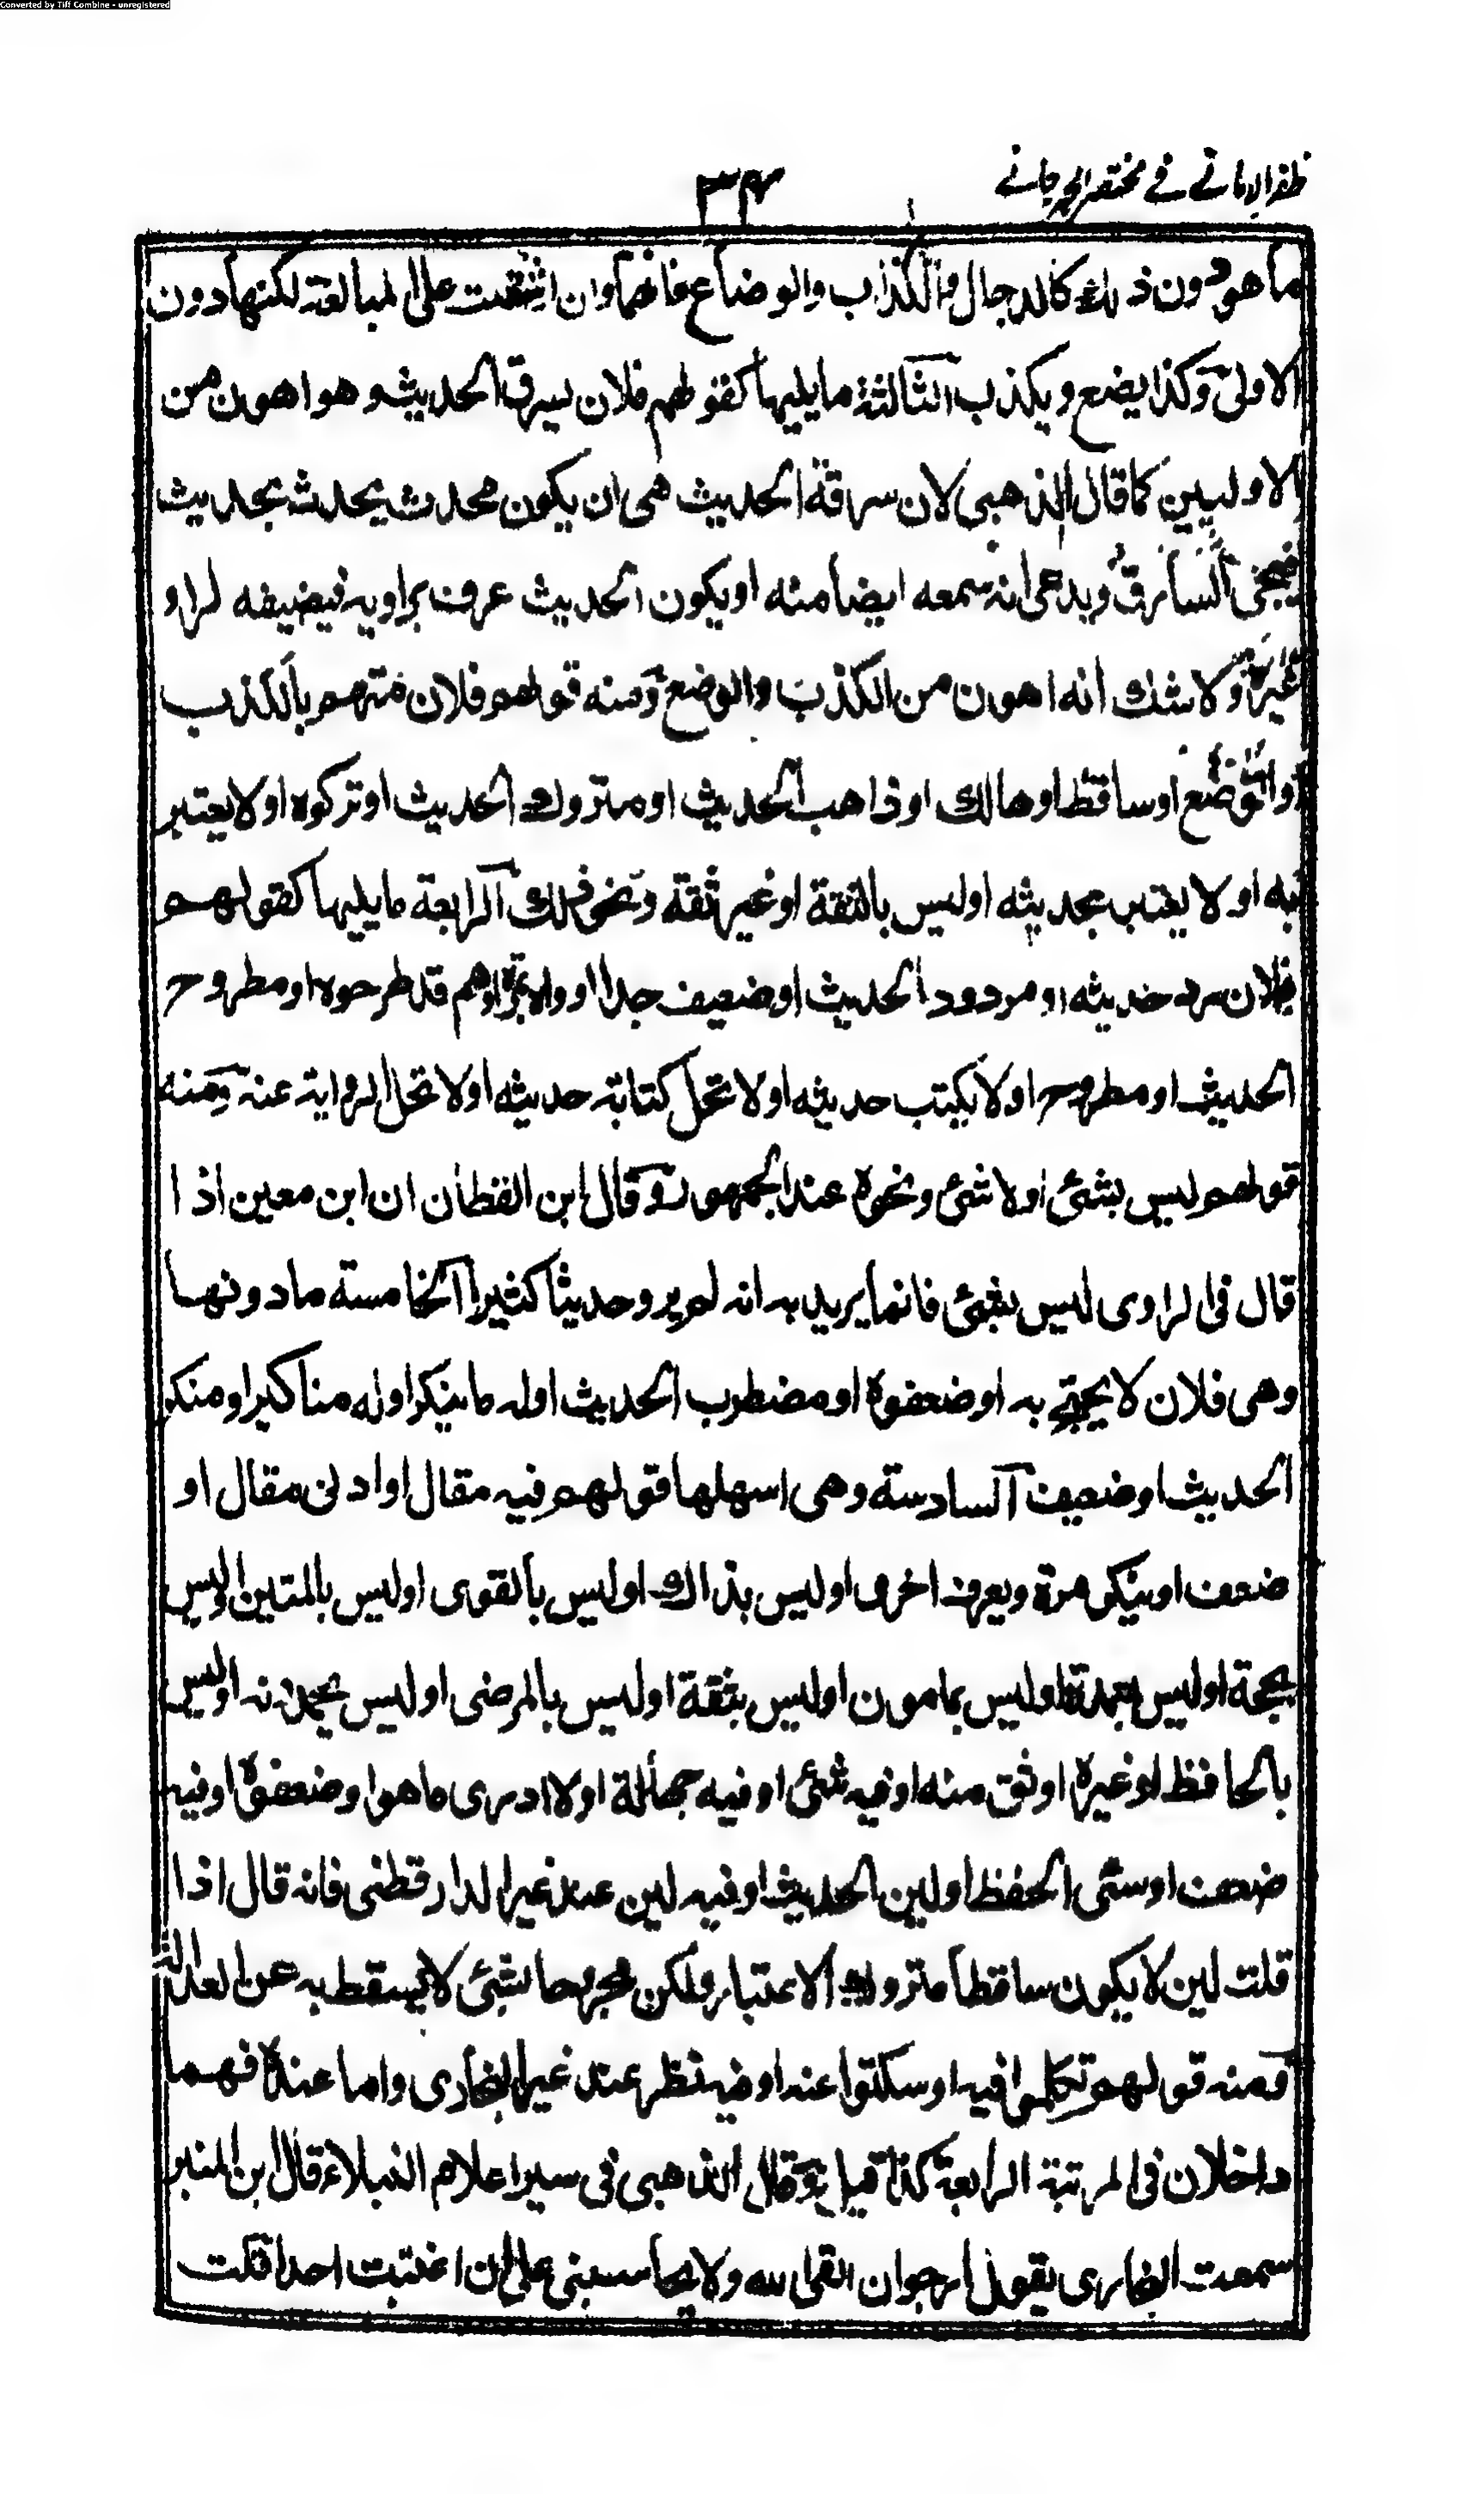 Converted by Tiff Combine - unregistered
ظفر الاماني في مختصر الجرجاني
٣٤
ما هو دون ذلك كالدجال والكذاب والوضاع فانها وان اشتملت على المبالغة لكنها دون
الاولى وكذا يضع ويكذب الثالثة ما يليها كقولهم فلان يسرق الحديث وهو اهون من
الاوليين كما قال الذهبى لان سرقة الحديث هى ان يكون محدث يحدث بحديث
فيجئ السارق ويدعى انه سمعه ايضا منه او يكون الحديث عرف براويه فيضيفه لراو
غيره ولا شك انه اهون من الكذب والوضع ومنه قولهم فلان متهم بالكذب
او الوضع او ساقط او هالك او ذاهب الحديث او متروك الحديث او تركوه او لا يعتبر
به او لا يعتبر بحديثه او ليس بالثقة او غير ثقة ونحو ذلك الرابعة ما يليها كقولهم
فلان رد حديثه او مردود الحديث او ضعيف جدا او واه بمرة او هم قد طرحوه او مطروح
الحديث او مطروح او لا يكتب حديثه او لا تحل كتابة حديثه او لا تحل الرواية عنه ومنه
قولهم ليس بشئ او لا شئ ونحوه عند الجمهور وقال ابن القطان ان ابن معين اذا
قال فى الراوى ليس بشئ فانما يريد به انه لم يرو حديثا كثيرا الخامسة ما دونها
وهى فلان لا يحتج به او ضعفوه او مضطرب الحديث او له ما ينكر او له مناكير او منكر
الحديث او ضعيف السادسة وهى اسهلها قولهم فيه مقال او ادنى مقال او
ضعف او ينكر مرة ويعرف اخرى او ليس بذاك او ليس بالقوى او ليس بالمتين او ليس
بحجة او ليس بعمدة او ليس بمامون او ليس بثقة او ليس بالمرضى او ليس يحمدونه او ليس
بالحافظ او غيره اوثق منه او فيه شئ او فيه جهالة او لا ادرى ما هو او ضعفوه او فيه
ضعف او سئى الحفظ او لين الحديث او فيه لين عند غير الدارقطنى فانه قال اذا
قلت لين لا يكون ساقطا متروك الاعتبار ولكن مجروحا بشئ لا يسقط به عن العدالة
ومنه قولهم تكلموا فيه او سكتوا عنه او فيه نظر عند غير البخارى واما عنده فهما
داخلان فى المرتبة الرابعة كذا قيل وقال الذهبى فى سير اعلام النبلاء قال ابن المنير
سمعت البخارى يقول ارجو ان القى الله ولا يحاسبنى على ان اغتبت احدا قلت